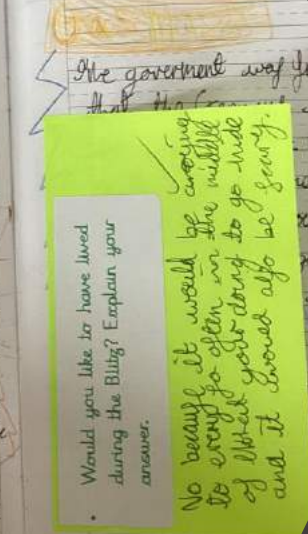 Gas mas
The goverment was
that the
Would you like to have lived
during the Blitz? Explain your
answer.
No because it would be annoying
to every so often in the middle
of what your doing to go hide
and it would also be scary.